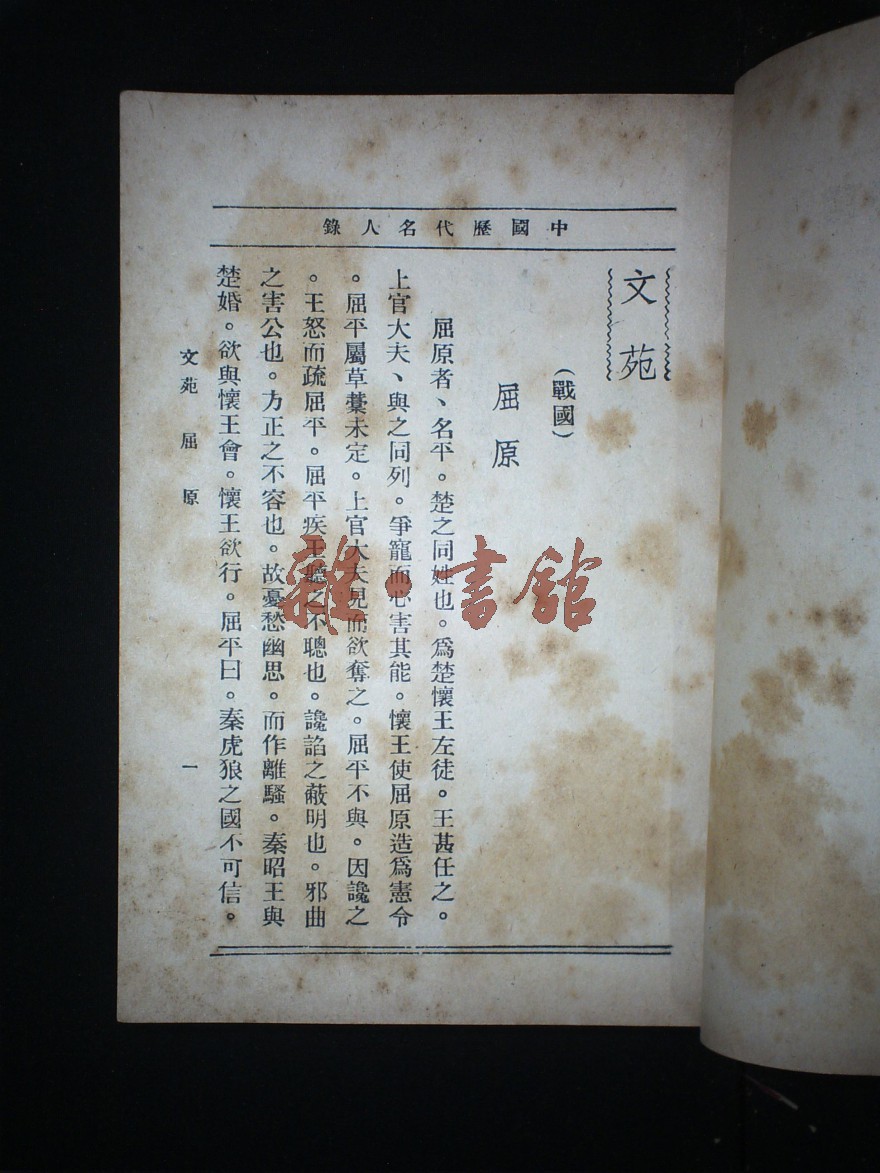 中國歷代名人錄
文苑
（戰國）
屈原
屈原者、名平。楚之同姓也。爲楚懷王左徒。王甚任之。
上官大夫、與之同列。爭寵而心害其能。懷王使屈原造爲憲令
。屈平屬草藁未定。上官大夫見而欲奪之。屈平不與。因讒之
。王怒而疏屈平。屈平疾王聽之不聰也。讒諂之蔽明也。邪曲
之害公也。方正之不容也。故憂愁幽思。而作離騷。秦昭王與
楚婚。欲與懷王會。懷王欲行。屈平曰。秦虎狼之國不可信。
文苑 屈原 一
雜·書館